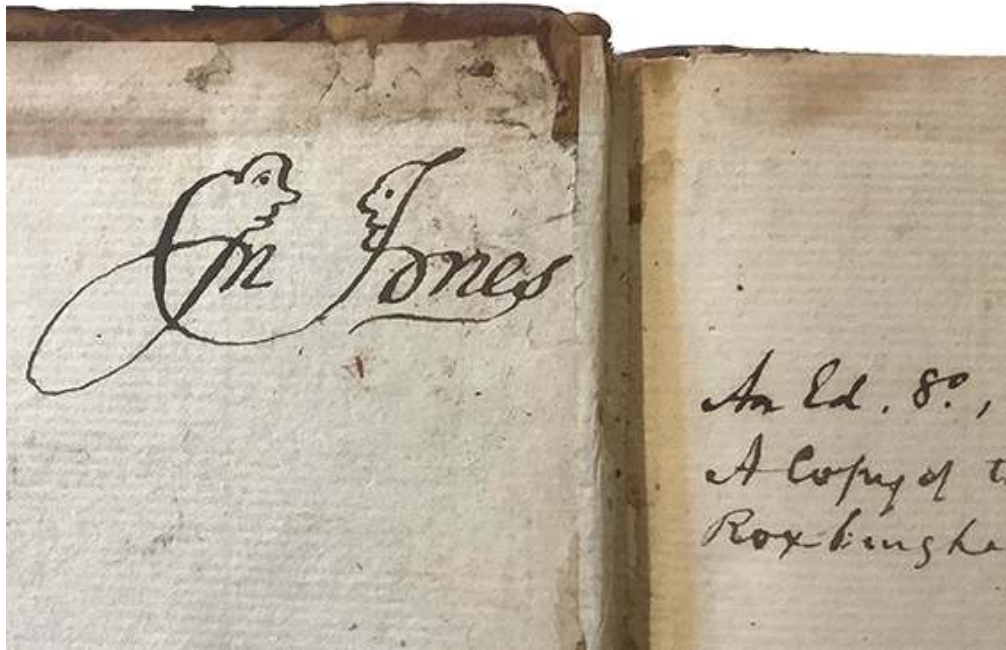 Em Jones
An Ed. 8º,
A Copy of t
Roxburghe